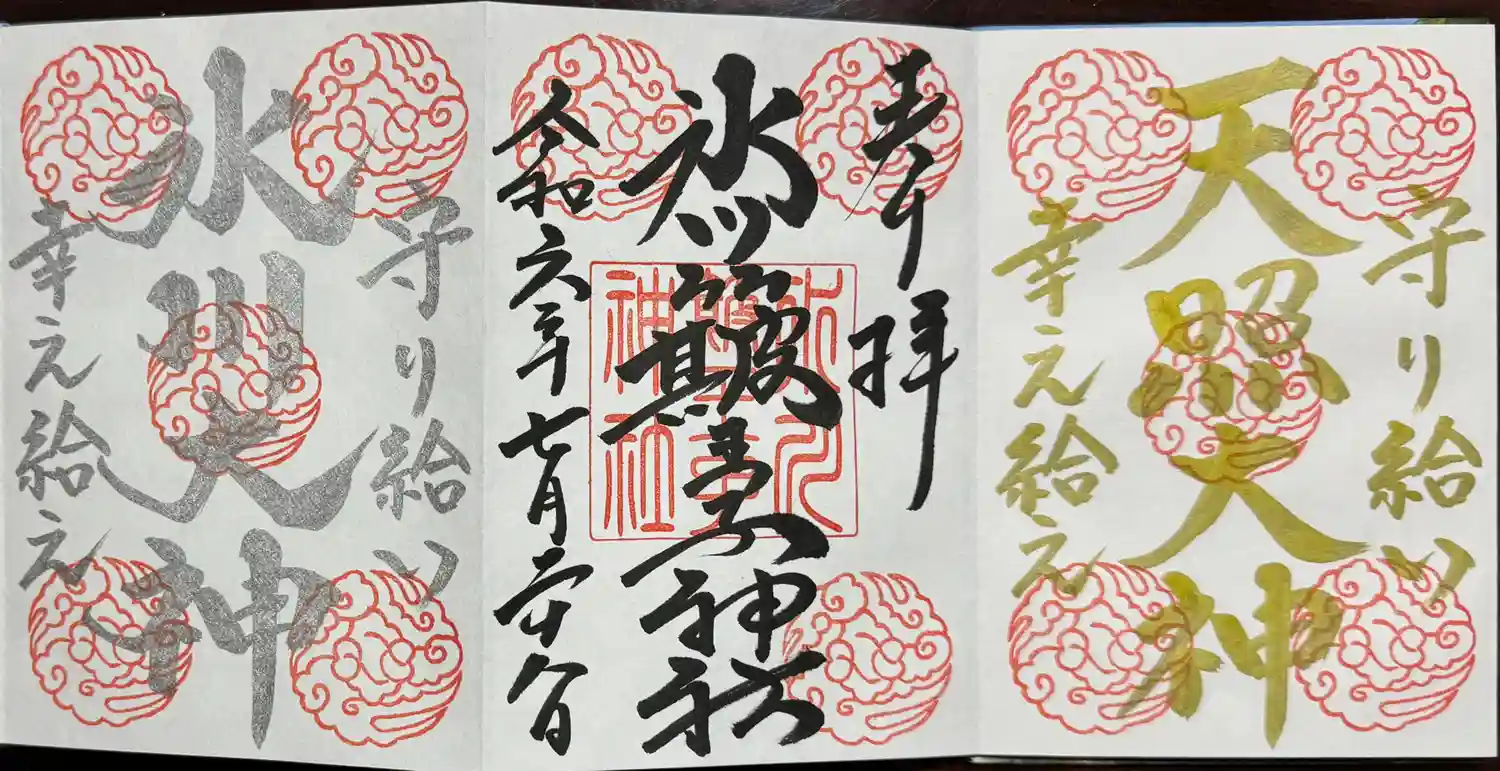 守り給い
天照大神
幸え給え
奉拝
氷川簸王子神社
氷川
簸王子
神社
令和六年七月二十八日
守り給い
氷川大神
幸え給え